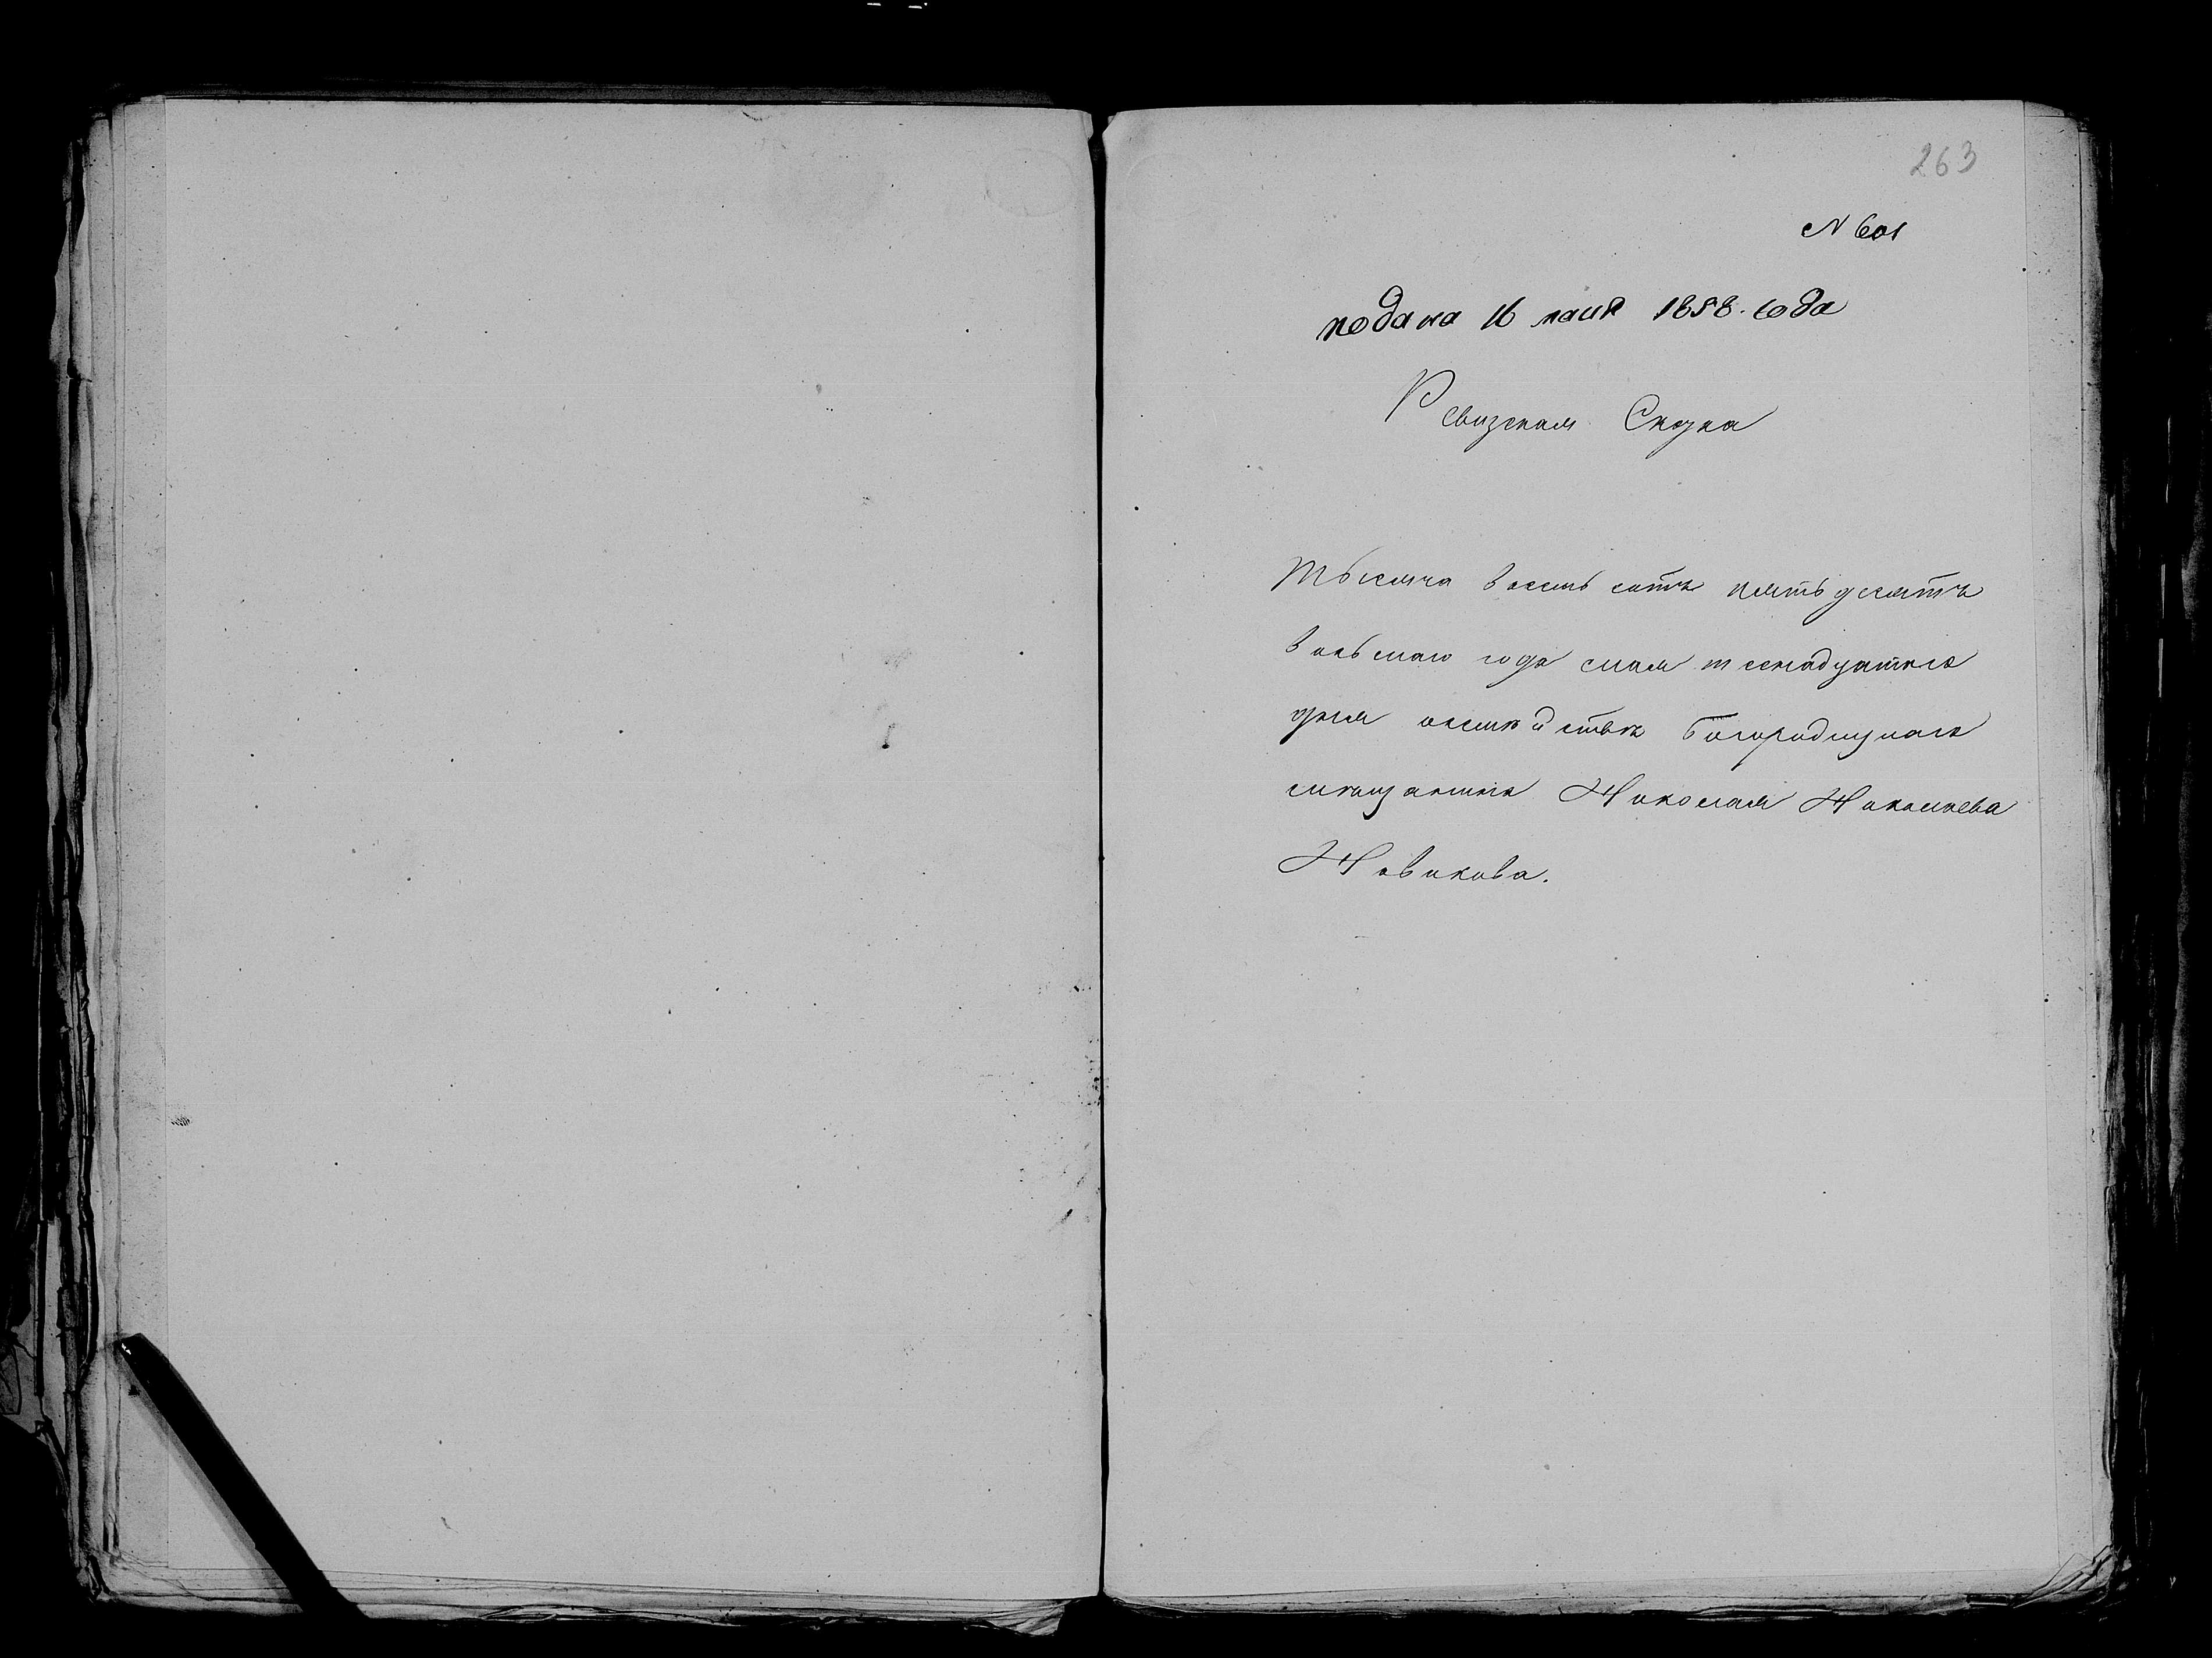 263
N 601
подана 16 маия 1858. года
Ревизская Скаска
Тысяча восемь сотъ пятьдесятъ
восьмаго года маия шеснадцатаго
дня о семействѣ богородицкаго
мѣщанина Николая Николаева
Новикова.